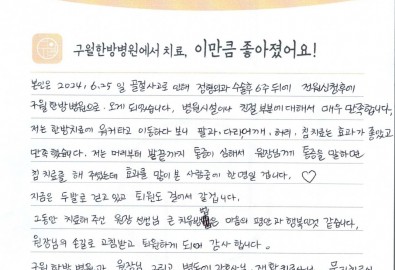 구월한방병원에서 치료, 이만큼 좋아졌어요!
본인은 2024, 6.25일 골절사고로 인해 정형외과 수술후 6주 뒤에 전원신청후에
구월한방병원으로 오게 되었습니다. 병원시설이나 친절 부분에 대해서 매우 만족합니다.
저는 한방치료에 워커타고 이동하다 보니 팔과, 다리, 어깨, 허리, 침치료는 효과가 좋았고
만족했습니다. 저는 머리부터 발끝까지 통증이 심해서 원장님께 통증을 말하면
침 치료를 해 주셨는데 효과를 많이 본 사람중에 한 명일 겁니다. ♡
지금은 두발로 걷고 있고 퇴원도 걸어서 갈겁니다.
그동안 치료해 주신 원장 선생님 큰 마음의 평안과 행복인것 같습니다.
원장님의 손길로 교정받고 퇴원하게 되어 감사 합니다.
구월 한방 병원과 원장님 그리고